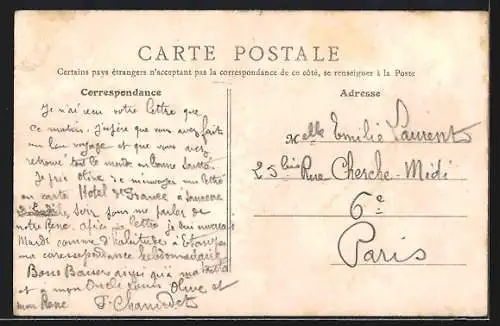 CARTE POSTALE
Certains pays étrangers n'acceptant pas la correspondance de ce côté, se renseigner à la Poste
Correspondance
Je n'ai reçu votre lettre que
ce matin. J'espère que vous avez fait
un bon voyage et que vous avez
retrouvé tout le monde en bonne santé.
Je prie Olive de m'envoyer une lettre
ou carte Hotel de France à
soir pour me parler de
notre René. lettre je
Mardi comme d'habitude à
ma correspondance hebdomadaire
Bons Baisers ainsi qu'à ma
et à mon Oncle Louis Olive et
mon René
Adresse
Melle Emilie Laurent
25 bis Rue Cherche-Midi
6e
Paris